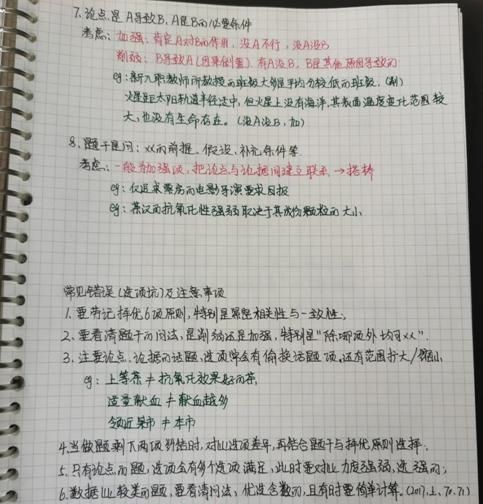 7.论点是 A导致B, A是B的必要条件
考虑: 加强: 肯定A对B的作用, 没A不行, 没A没B
削弱: B导致A(因果倒置), 有A没B, B是其他原因导致的
eg: 新入职教师所教授的班级大多是平均分较低的班级. (削)
火星距太阳轨道半径适中, 但火星上没有海洋, 其表面温度变化范围较
大, 也没有生命存在。(没A没B, 加)
8.题干提问: xx的前提、假设、补充条件等
考虑: 一般为加强项, 把论点与论据间建立联系 → 搭桥
eg: 仅追求票房的电影导演要求
eg: 茶汉的抗氧化性强弱取决于其成份颗粒的大小.
常见错误(选项坑)及注意事项
1. 要劳记择优6项原则, 特别是
相关性与一致性;
2. 要看清题干的问法, 是削弱还是加强, 特别是"除哪项外均可xx".
3. 注意论点、论据的话题, 选项常会有偷换话题项, 还有范围扩大/缩小
eg: 上等茶 ≠ 抗氧化效果好的茶
适量献血 ≠ 献血越多
邻近某市 ≠ 本市
4.当做题剩下两项纠结时, 对比选项差异, 再结合题干与择优原则选择.
5. 只有论点的题, 选项会有多个选项满足, 此时要对比力度强弱, 选强的;
6. 数据比较类的题, 要看清问法, 优选含数的, 且有时要简单计算. (2017.上.70.71)